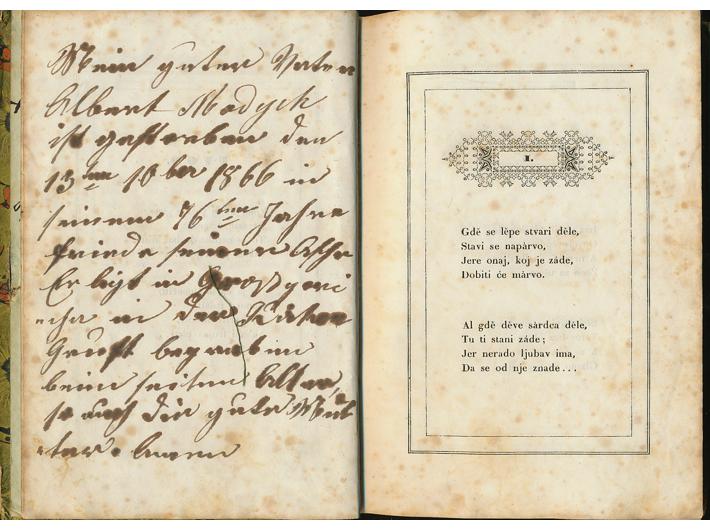 Mein guter Vater
Albert Modych
ist gestorben den
13ten 10ber 1866 in
seinem 76ten Jahre
friede seiner Asche
Er ligt in
in der
Gruft begraben
beim seiten Altar,
so auch die gute Mut
ter. Amen
I.
Gdě se lěpe stvari děle,
Stavi se napàrvo,
Jere onaj, koj je záde,
Dobiti će màrvo.
Al gdě děve sàrdca děle,
Tu ti stani záde;
Jer nerado ljubav ima,
Da se od nje znade...